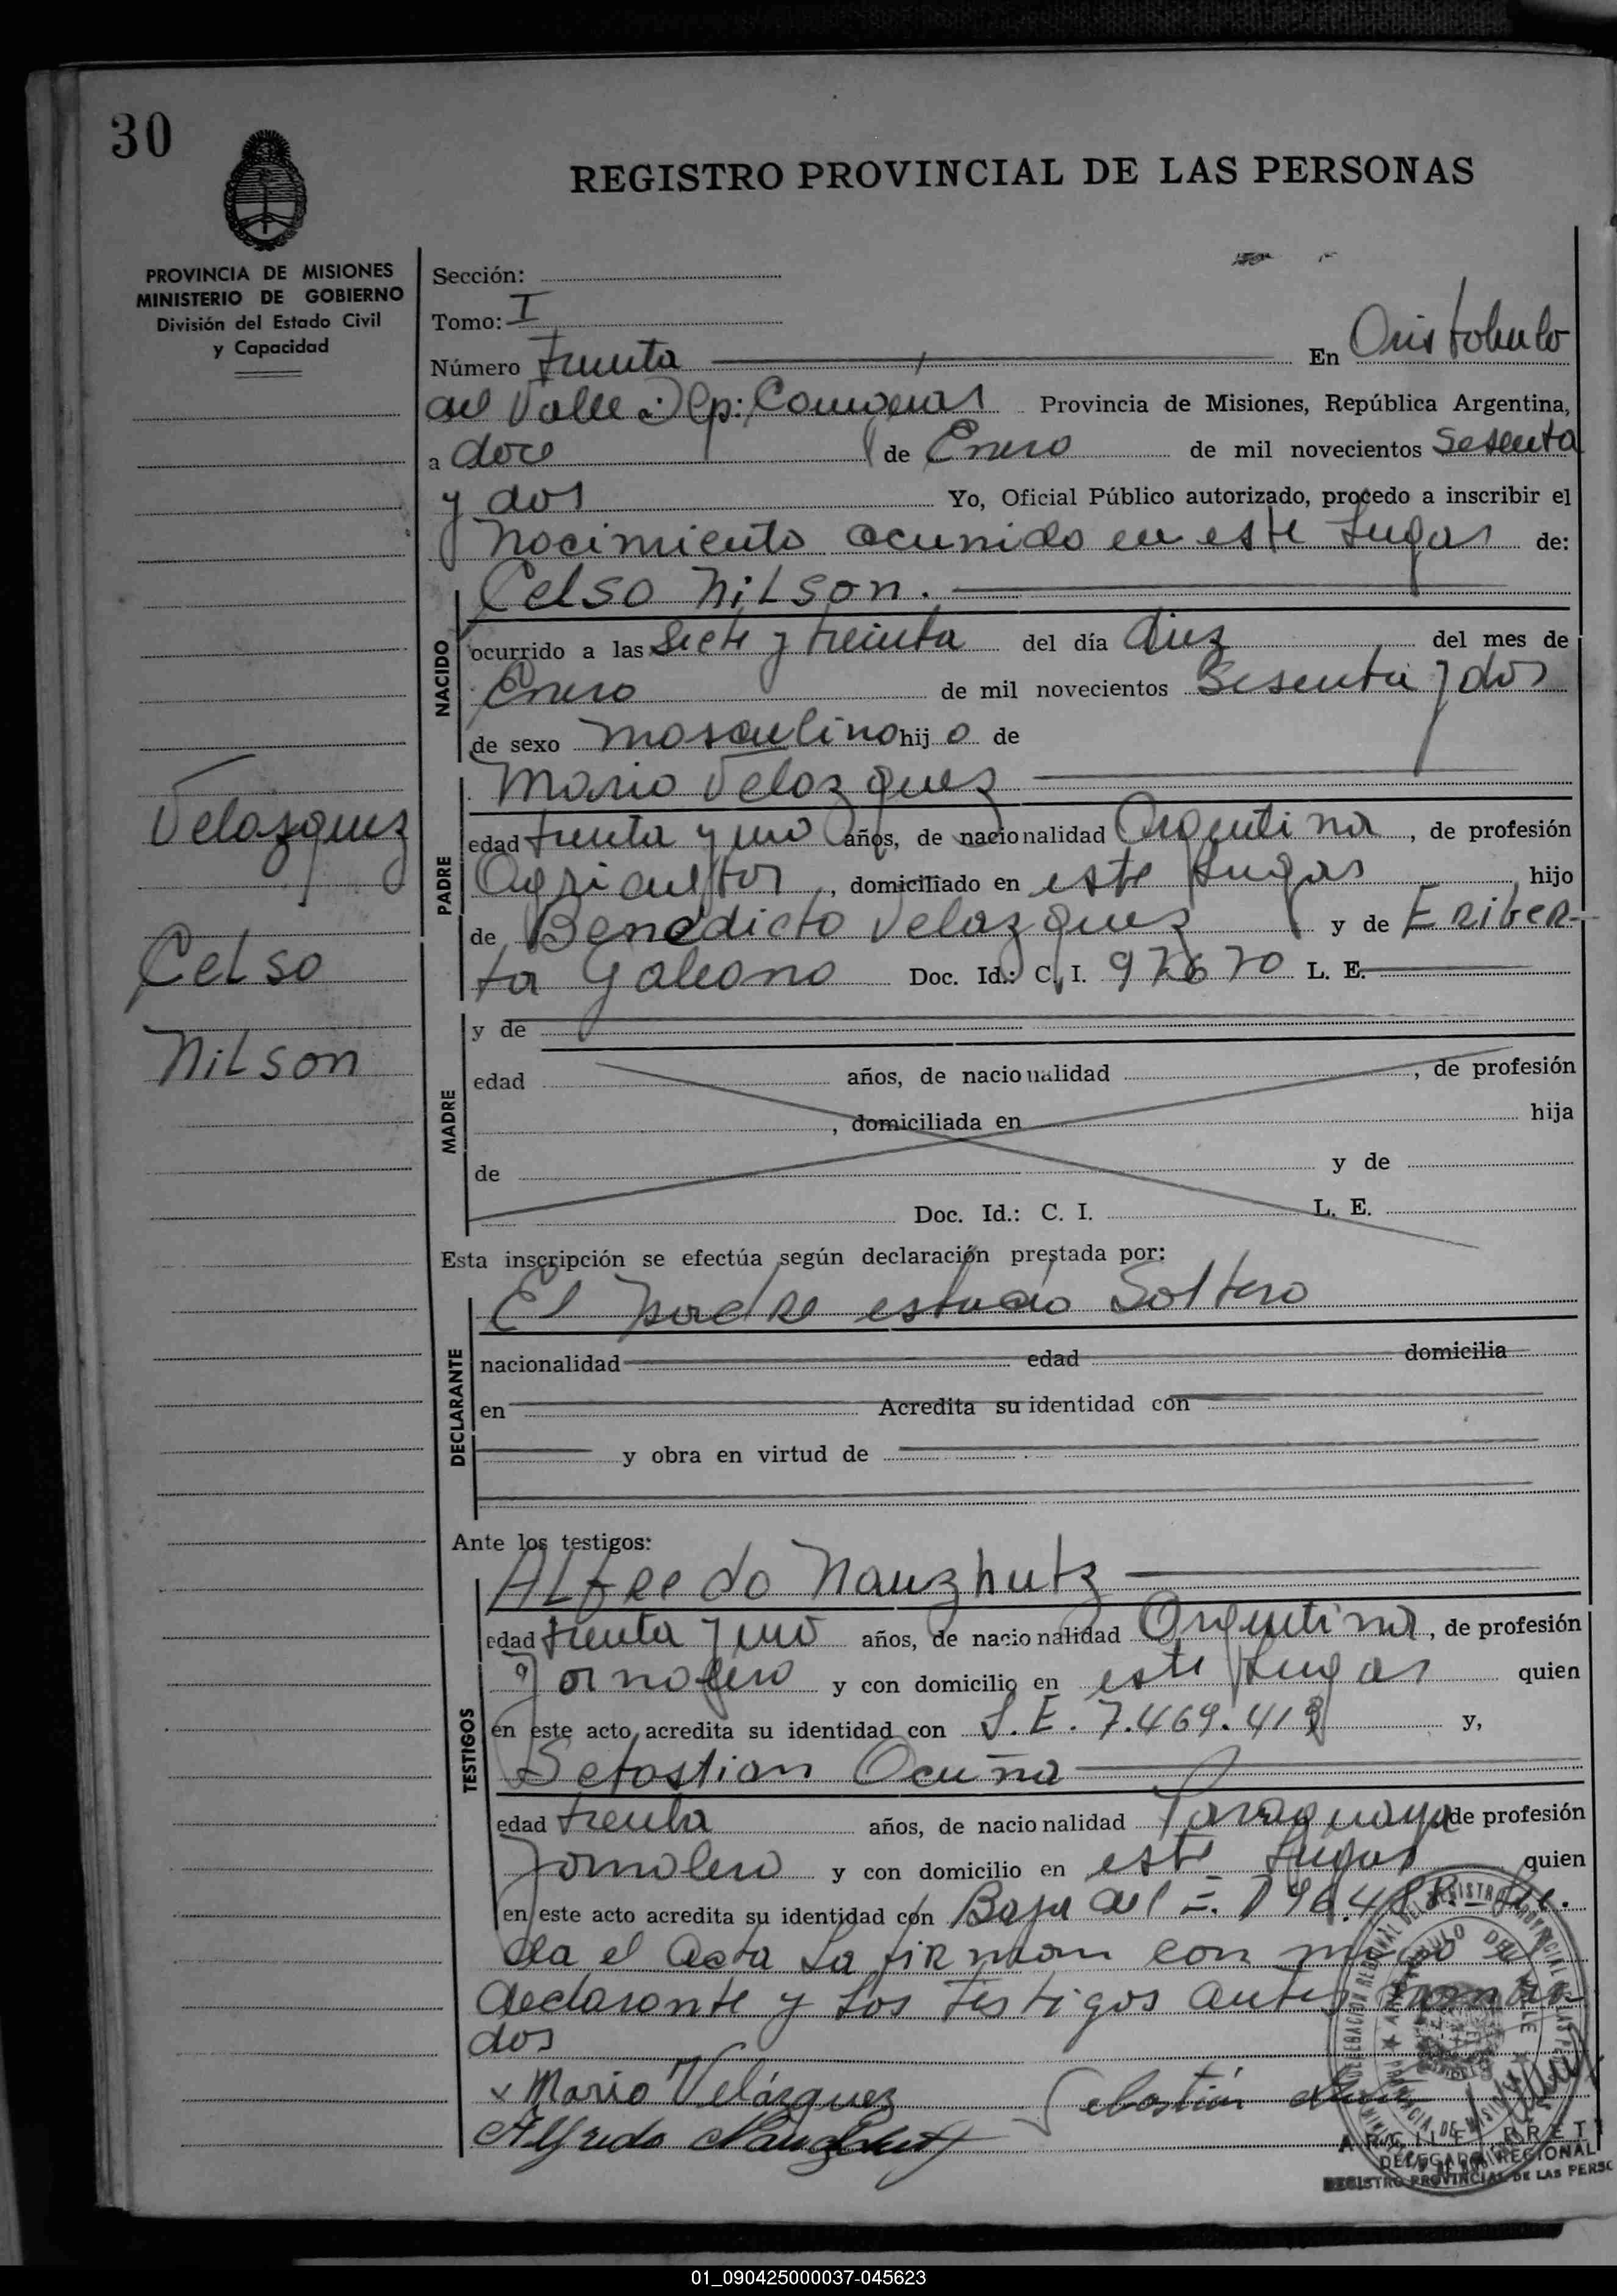 30
REGISTRO PROVINCIAL DE LAS PERSONAS
PROVINCIA DE MISIONES
MINISTERIO DE GOBIERNO
División del Estado Civil
y Capacidad
Sección:
Tomo: I
Número Treinta En Aristobulo
del Valle Dep: Provincia de Misiones, República Argentina,
a doce de Enero de mil novecientos Sesenta
y dos Yo, Oficial Público autorizado, procedo a inscribir el
nacimiento ocurrido en este Lugar de:
Celso Nilson.
NACIDO
ocurrido a las Siete y treinta del día diez del mes de
Enero de mil novecientos Sesenta y dos
de sexo masculino hij o de
Mario Velazquez
Velazquez
Celso
Nilson
PADRE
edad treinta y uno años, de nacionalidad Argentina, de profesión
Agricultor, domiciliado en este Lugar hijo
de Benedicto Velazquez y de Eriber-
ta Galeano Doc. Id.: C. I. 97670 L. E.
MADRE
y de
edad años, de nacionalidad , de profesión
, domiciliada en hija
de y de
Doc. Id.: C. I. L. E.
Esta inscripción se efectúa según declaración prestada por:
El padre estado Soltero
DECLARANTE
nacionalidad edad domicilia
en Acredita su identidad con
y obra en virtud de
Ante los testigos:
Alfredo Nauzhutz
TESTIGOS
edad treinta y uno años, de nacionalidad Argentina, de profesión
Jornalero y con domicilio en este Lugar quien
en este acto acredita su identidad con L. E. 7.469.41 y,
Sebastian Acuña
edad treinta años, de nacionalidad Paraguaya de profesión
Jornalero y con domicilio en este Lugar quien
en este acto acredita su identidad con Baja del
da el Acta La firman con migo el
declarante y Los Testigos antes nombra
dos
x Mario Velázquez Sebastián
Alfredo
DELEGADO REGIONAL
REGISTRO PROVINCIAL DE LAS PERSO
01_090425000037-045623